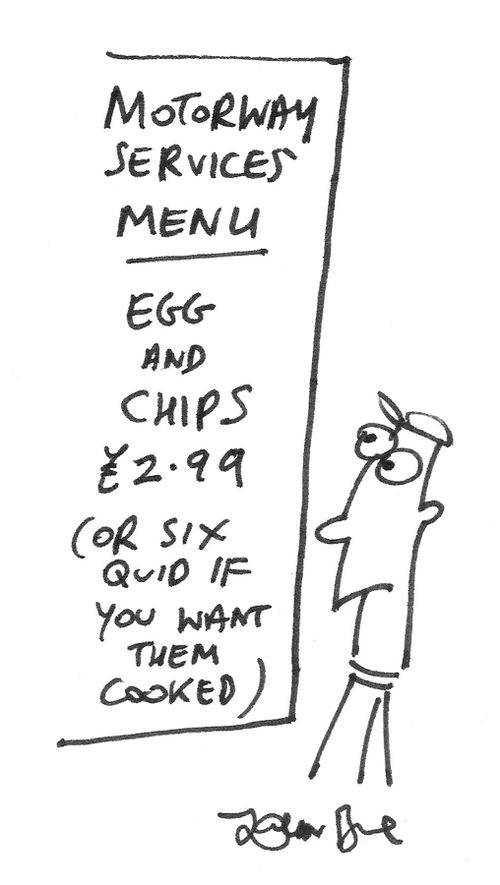 MOTORWAY
SERVICES
MENU
EGG
AND
CHIPS
£2.99
(OR SIX
QUID IF
YOU WANT
THEM
COOKED)